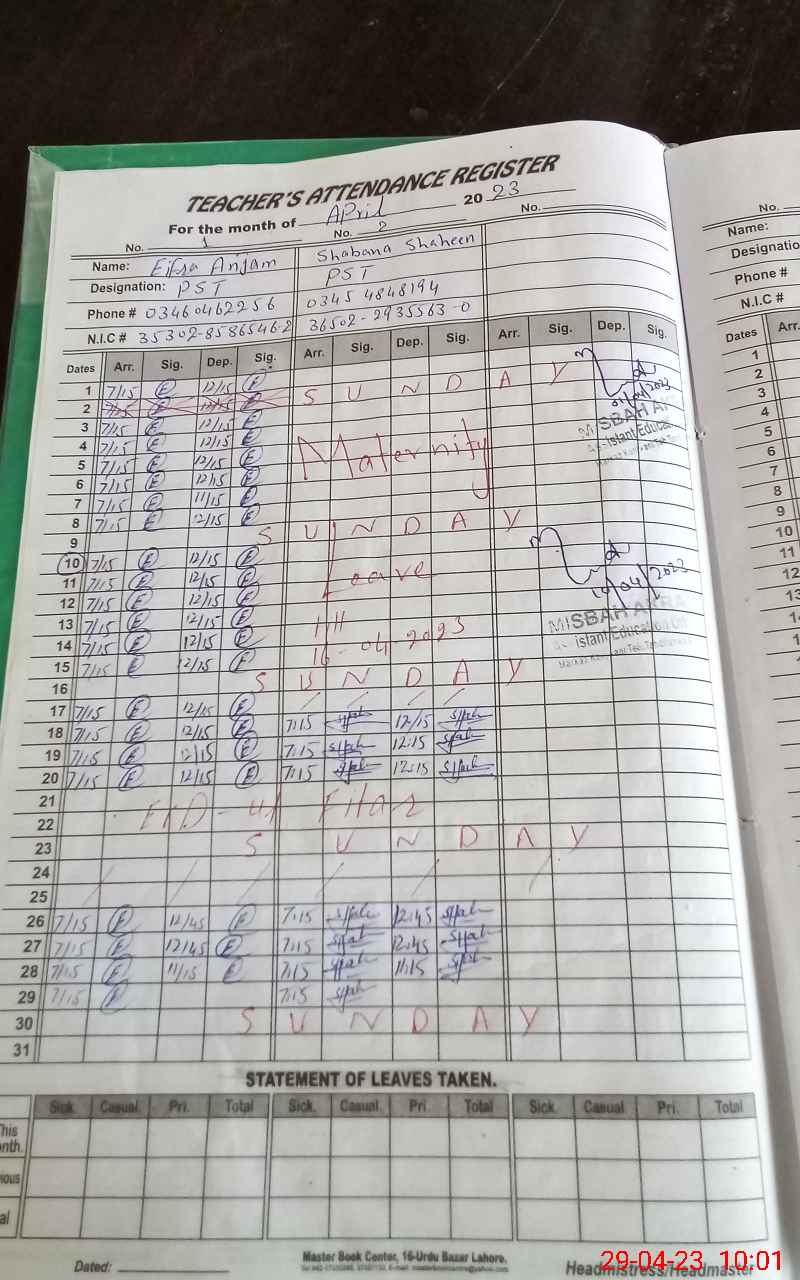 TEACHER'S ATTENDANCE REGISTER
For the month of April 2023
No. 1 No. 2 No.
Name: Eifra Anjam Shabana Shaheen
Designation: PST PST
Phone # 03460462256 0345 4848194
N.I.C # 35302-8586546-2 36502-2935563-0
Dates Arr. Sig. Dep. Sig. Arr. Sig. Dep. Sig. Arr. Sig. Dep. Sig.
1 7/15 E 12/15 E
2 7/15 E 12/15 E S U N D A Y
3 7/15 E 12/15 E
4 7/15 E 12/15 E
5 7/15 E 12/15 E Maternity
6 7/15 E 12/15 E
7 7/15 E 11/15 E
8 7/15 E 12/15 E
9 S U N D A Y
10 7/15 E 12/15 E
11 7/15 E 12/15 E Leave
12 7/15 E 12/15 E
13 7/15 E 12/15 E till
14 7/15 E 12/15 E 16-04-2023
15 7/15 E 12/15 E
16 S U N D A Y
17 7/15 E 12/15 E
18 7/15 E 12/15 E 7:15 12/15
19 7/15 E 12/15 E 7:15 12:15
20 7/15 E 12/15 E 7:15 12:15
21
22
23 S U N D A Y
24
25
26 7/15 E 12/45 E 7:15 12:45
27 7/15 E 12/45 E 7:15 12:45
28 7/15 E 11/15 E 7:15 11:15
29 7/15 E 7:15
30 S U N D A Y
31
01/04/2023
MISBAH AKRA
istant Educa
10/04/2023
MISBAH AKRA
istant Education Off
STATEMENT OF LEAVES TAKEN.
Sick. Casual. Pri. Total Sick. Casual. Pri. Total Sick. Casual Pri. Total
This
nth.
ious
al
Dated:
Master Book Center, 16-Urdu Bazar Lahore.
Headmistress/Headmaster
29-04-23 10:01
No.
Name:
Designatio
Phone #
N.I.C #
Dates Arr.
1
2
3
4
5
6
7
8
9
10
11
12
13
14
15
16
17
18
19
20
21
22
23
24
25
26
27
28
29
30
31